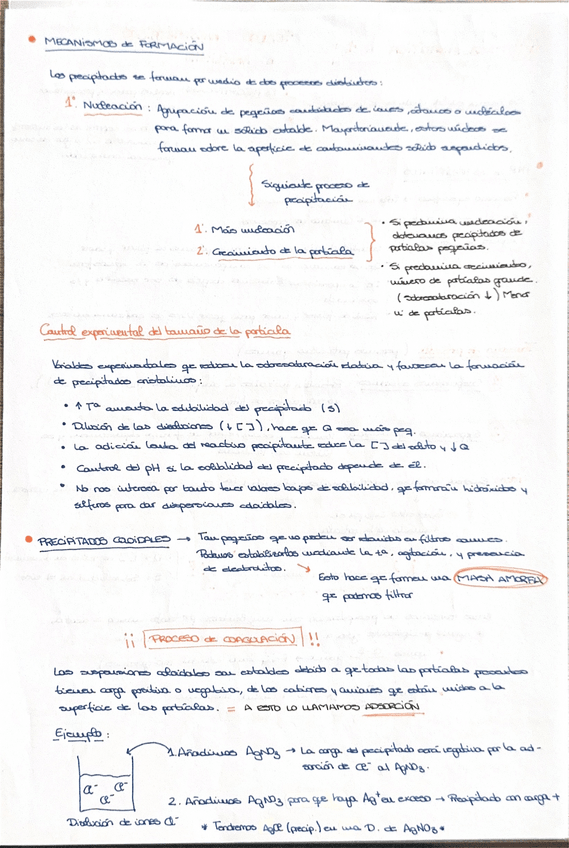 • MECANISMOS de FORMACIÓN
Los precipitados se forman por medio de dos procesos distintos:
1º. Nucleación: Agrupación de pequeñas cantidades de iones, átomos o moléculas
para formar un sólido estable. Mayoritariamente, estos núcleos se
forman sobre la superficie de contaminantes sólido suspendidos.
Siguiente proceso de
precipitación
1º. Más nucleación
2º. Crecimiento de la partícula
• Si predomina nucleación,
obtenemos precipitados de
partículas pequeñas.
• Si predomina crecimiento,
número de partículas grande.
(sobresaturación ↓) Menor
nº de partículas.
Control experimental del tamaño de la partícula
Variables experimentales qe reducen la sobresaturación relativa y favorecen la formación
de precipitados cristalinos:
• ↑ Tª aumenta la solubilidad del precipitado (S)
• Dilución de las disoluciones (↓[ ]), hace qe Q sea más peq.
• La adición lenta del reactivo precipitante reduce la [ ] del soluto y ↓Q
• Control del pH si la solubilidad del precipitado depende de él.
• No nos interesa por tanto tener valores bajos de solubilidad, qe formarán hidróxidos y
sulfuros para dar dispersiones coloidales.
• PRECIPITADOS COLOIDALES → Tan pequeños qe no pueden ser retenidos en filtros comunes.
Podemos estabilizarlos mediante la tª, agitación, y presencia
de electrolitos.
Esto hace qe formen una MASA AMORFA
qe podemos filtrar
¡¡ PROCESO de COAGULACIÓN !!
Las suspensiones coloidales son estables debido a qe todas las partículas presentes
tienen carga positiva o negativa, de los cationes y aniones qe están unidos a la
superficie de las partículas. = A ESTO LO LLAMAMOS ADSORCIÓN
Ejemplo:
1. Añadimos AgNO3 → La carga del precipitado será negativa por la ad-
sorción de Cl- al AgNO3.
Cl- Cl-
Cl-
2. Añadimos AgNO3 para qe haya Ag+ en exceso → Precipitado con carga +
Disolución de iones Cl-
* Tendremos AgCl (precip.) en una D. de AgNO3 *